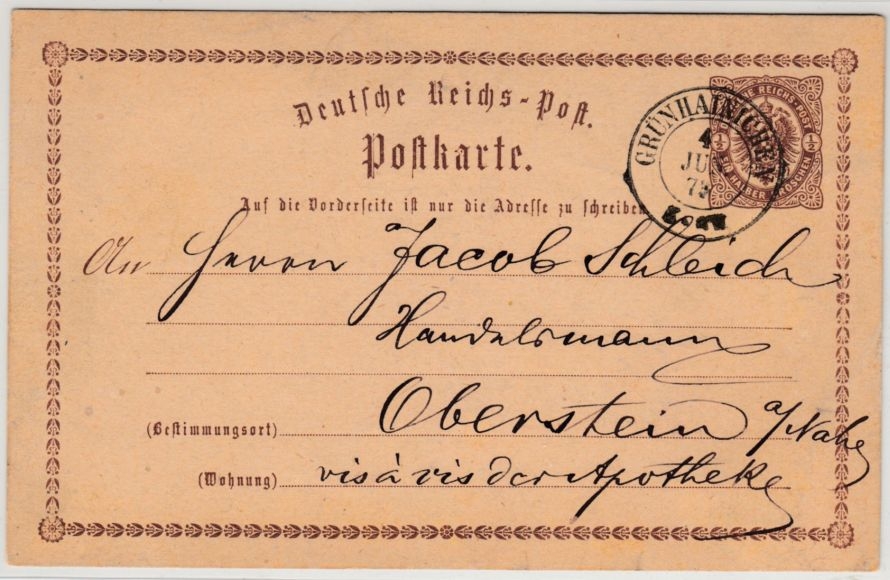 Deutsche Reichs-Post.
Postkarte.
GRÜNHAINICHEN
4
JU
REICHS-POST
½ ½
EIN HALBER GROSCHEN
Auf die Vorderseite ist nur die Adresse zu schreiben
An Herrn Jacob Schleich
Handelsmann
(Bestimmungsort) Oberstein a/Nahe
(Wohnung) vis à vis der Apotheke